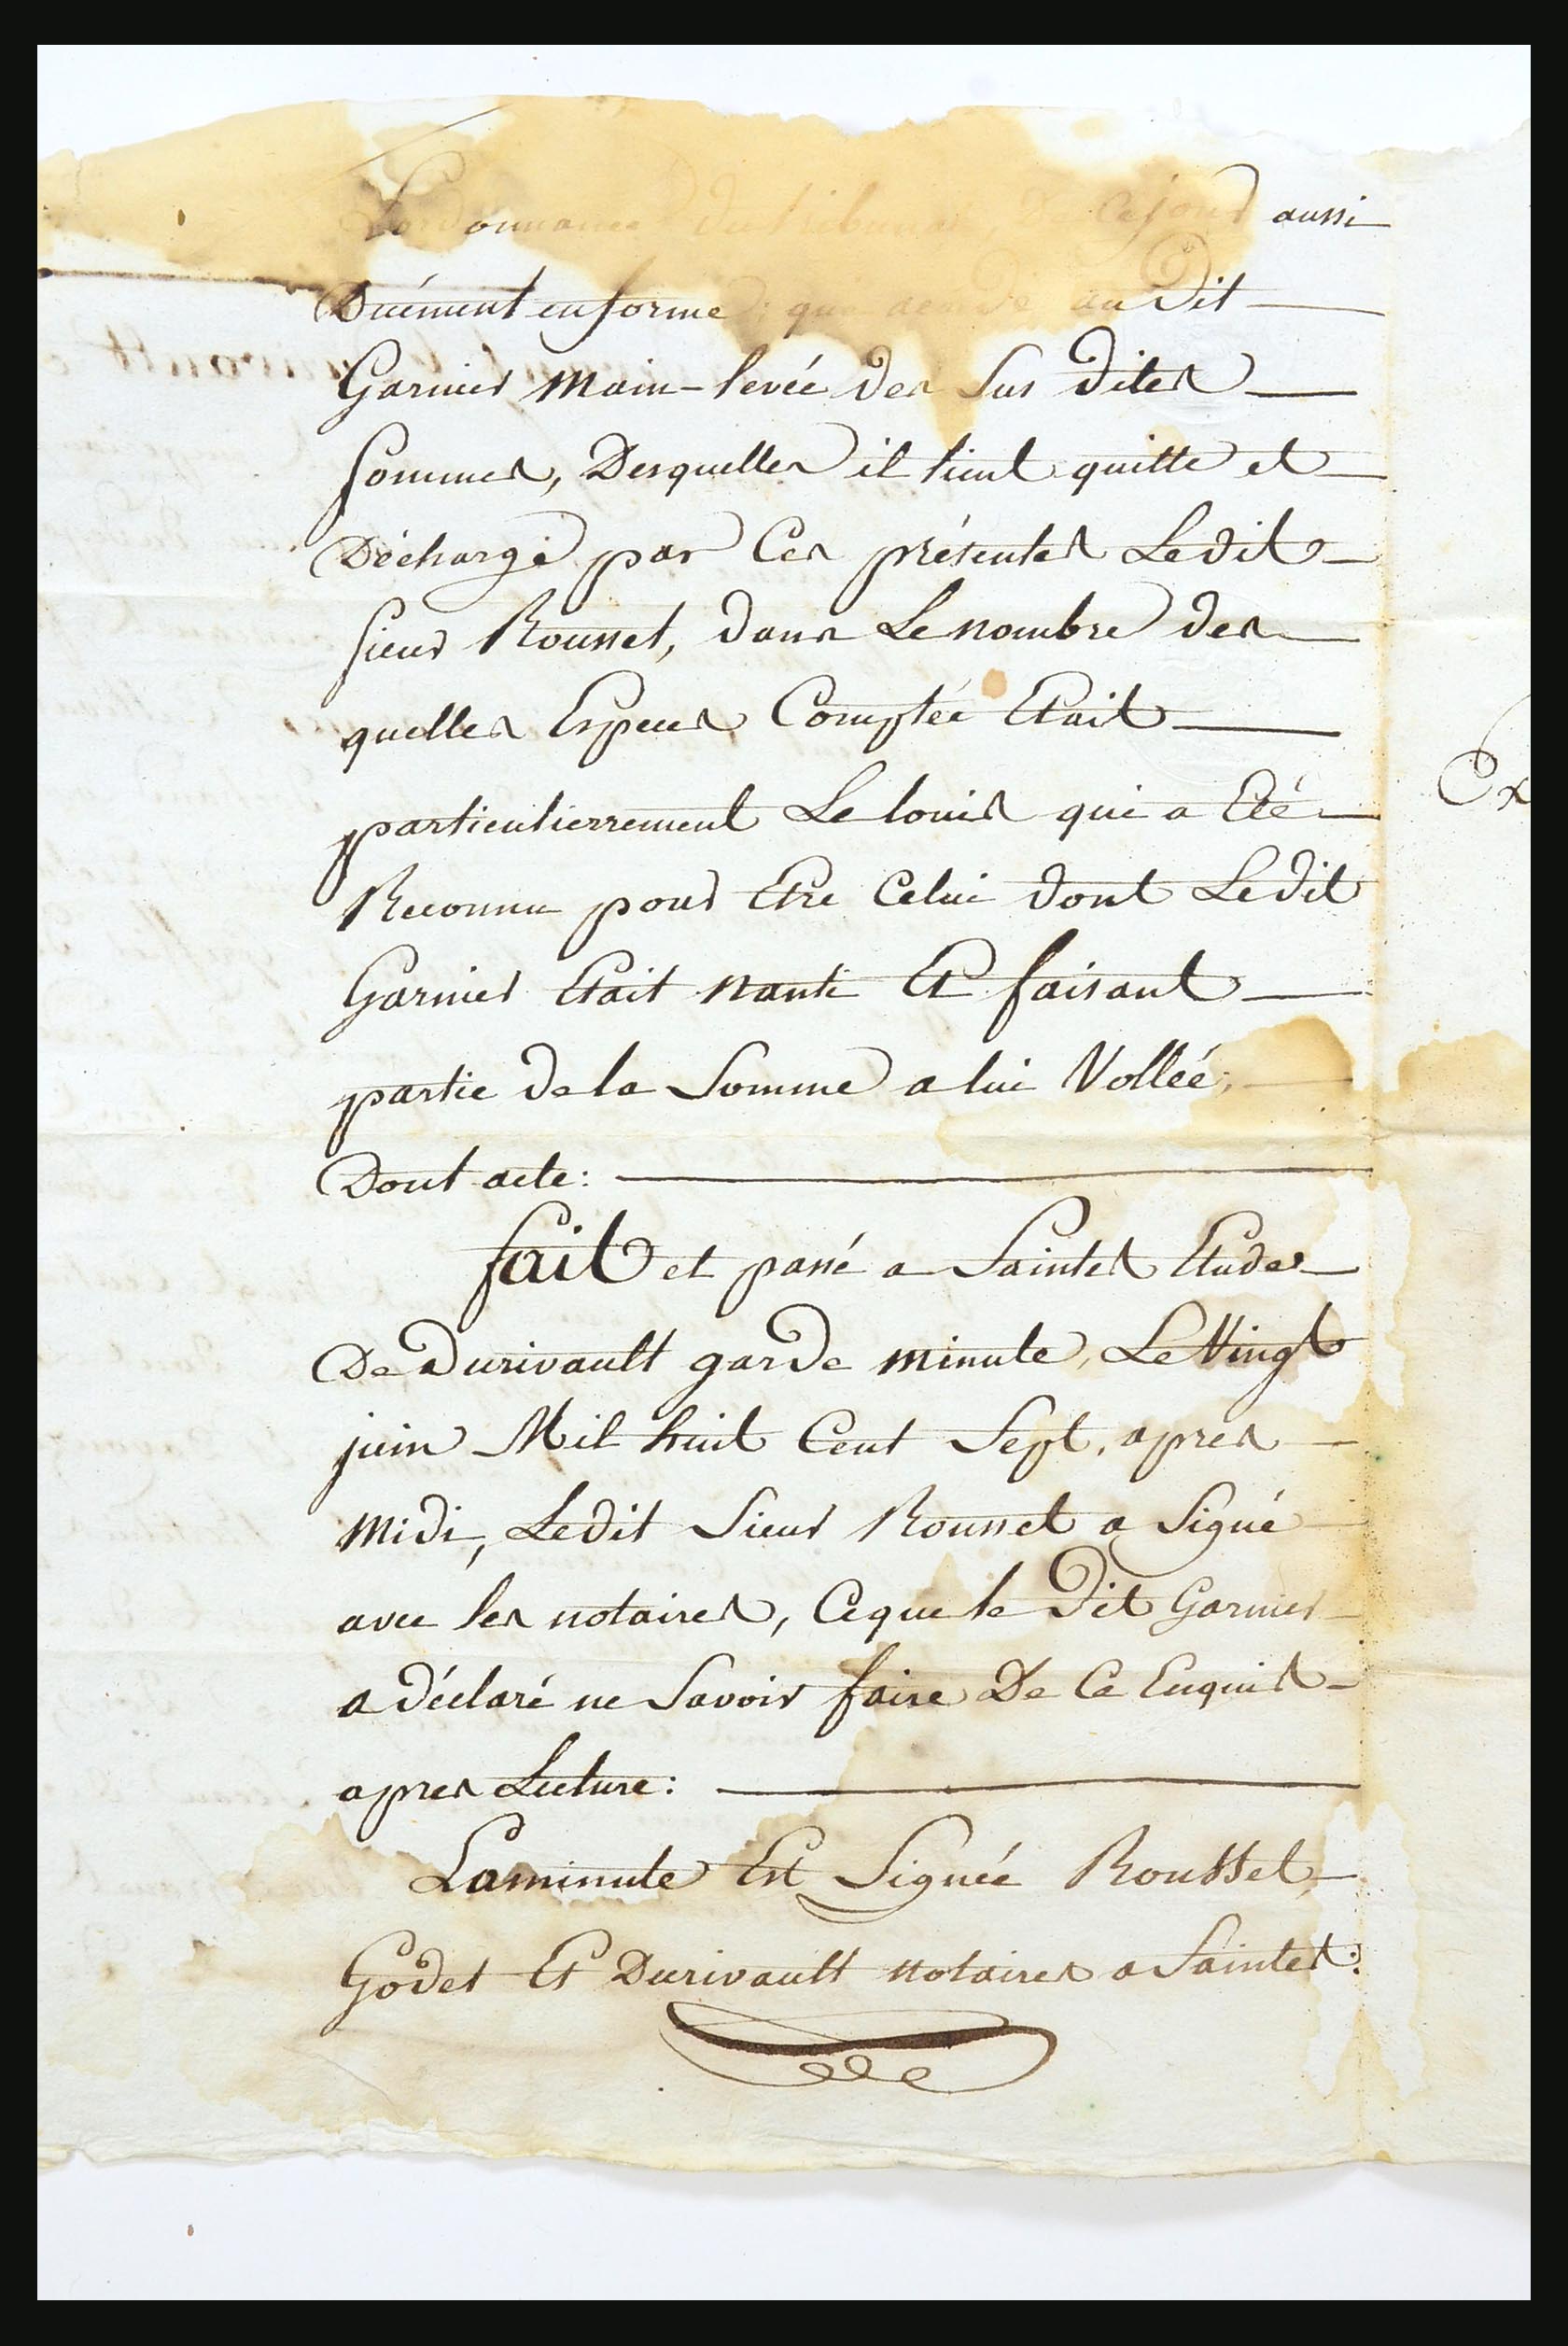 L'ordonnance du tribunal, ce jour aussi
Duément en forme; que au Dit
Garnier Main-levée des Sus dites
Sommes, Desquelles il tient quitte et
Déchargé par Ces présentes Ledit
Sieur Rousset, dans Le nombre des
quelles Especes Comptée Etait
particulierrement Le louis qui a Eté
Reconnu pour Etre Celui dont Ledit
Garnier Etait Nanti Et faisant
partie de la Somme a lui Vollée;
Dont acte:
fait et passé a Saintes Etude
De Durivault garde Minute, Le Vingt
juin Mil huit Cent Sept, apres
Midi, Ledit Sieur Rousset a Signé
avec les notaires, Ce que le Dit Garnier
a déclaré ne Savoir faire De Ce Enquis
apres Lecture:
La minute Est Signée Rousset,
Godet Et Durivault notaires a Saintes: